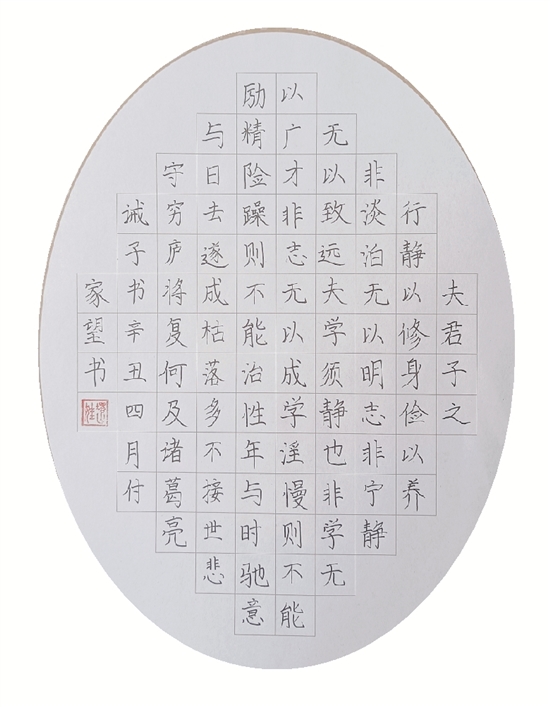 夫君子之
行静以修身俭以养
非淡泊无以明志非宁静
无以致远夫学须静也非学无
以广才非志无以成学淫慢则不能
励精险躁则不能治性年与时驰意
与日去遂成枯落多不接世悲
守穷庐将复何及诸葛亮
诫子书辛丑四月付
家望书